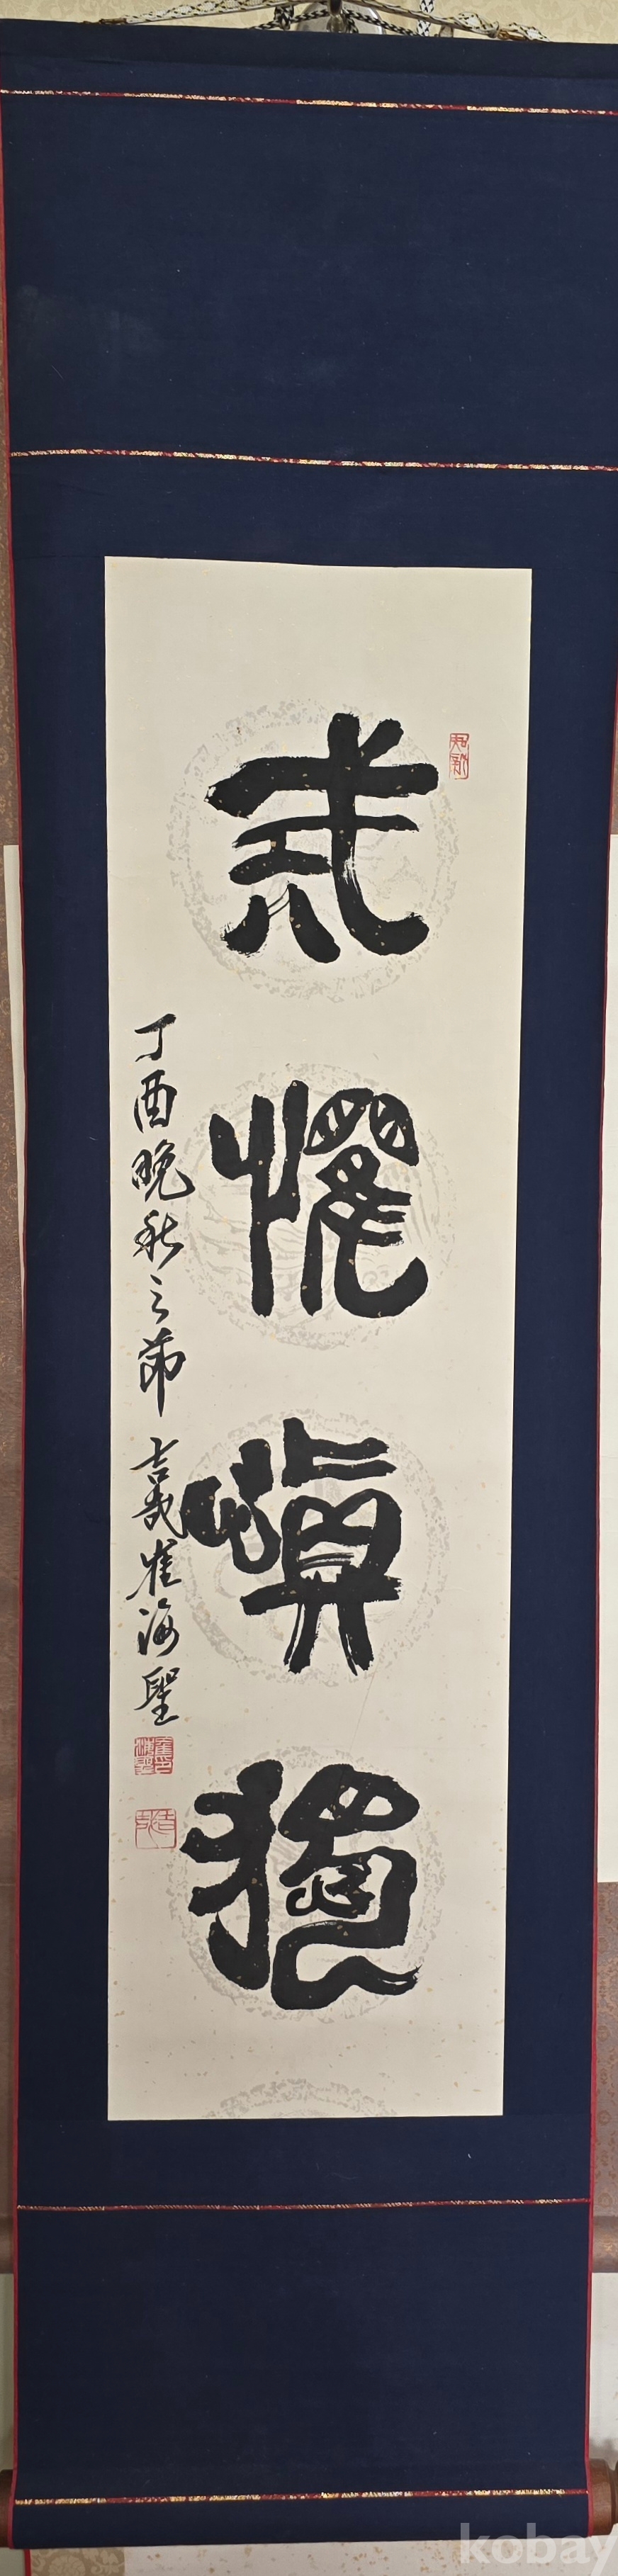 戒懼愼獨
丁酉晩秋之節 吉哉崔海聖
kobay